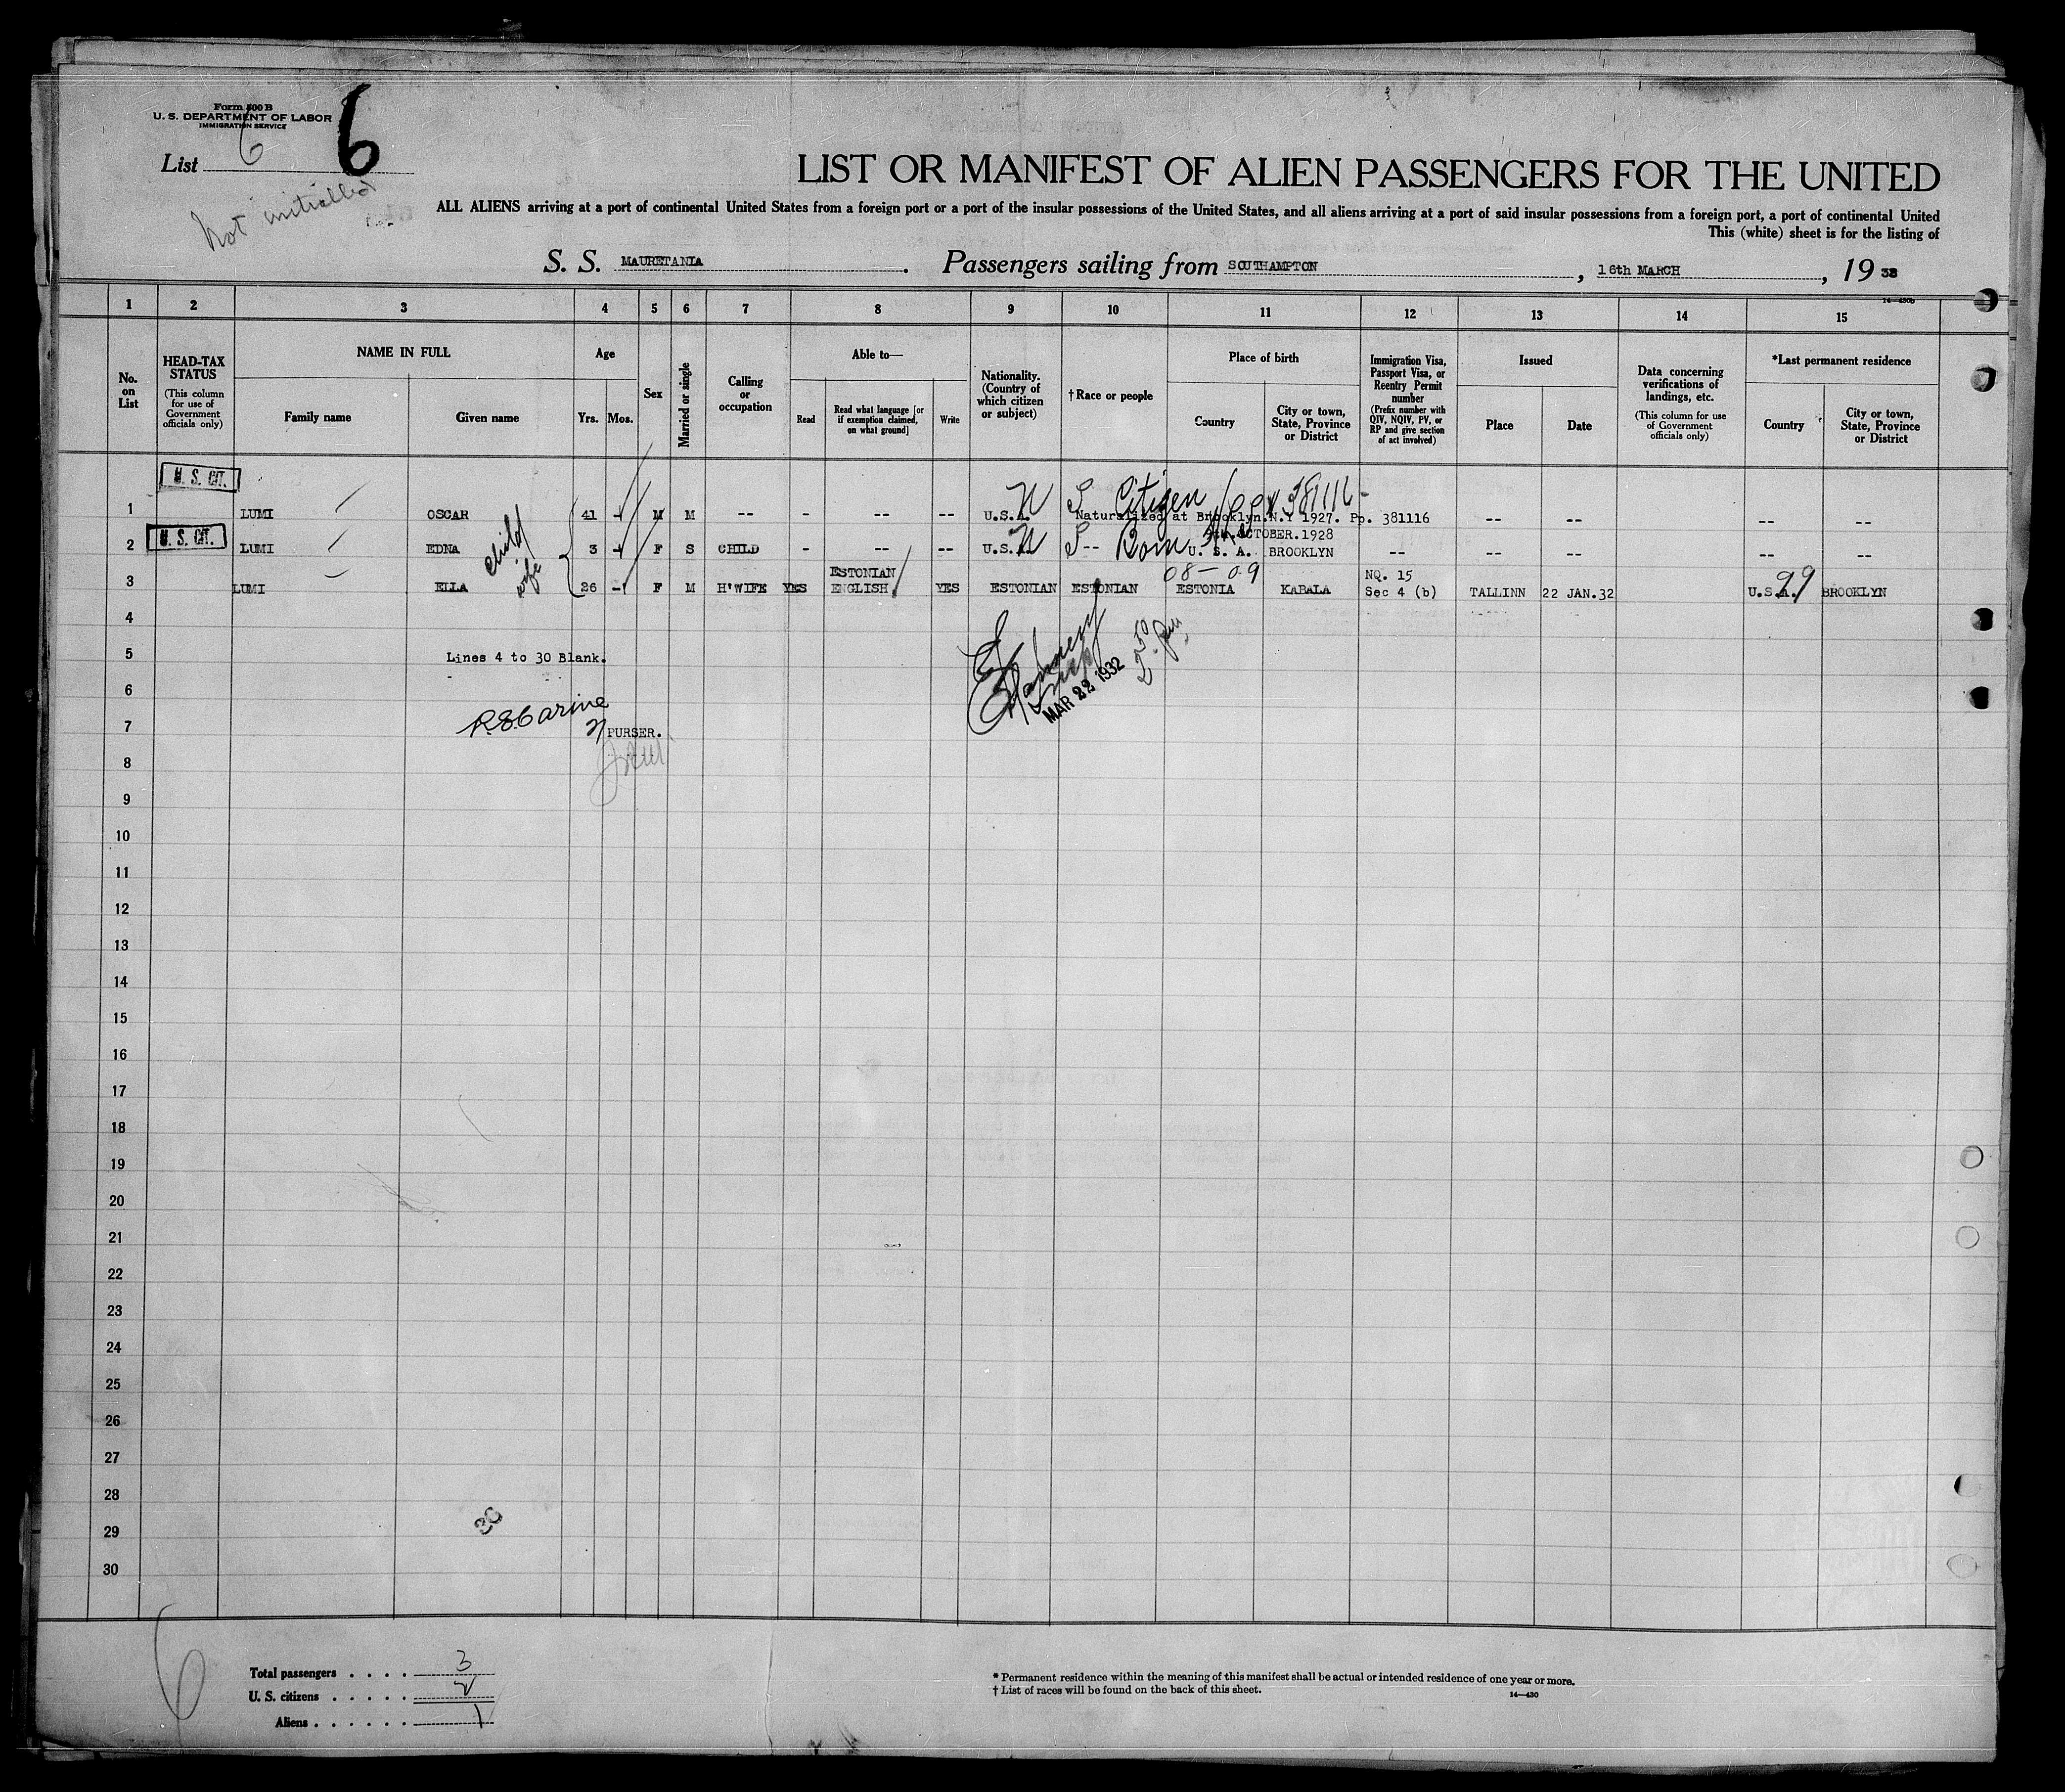 Form 500 B
U. S. DEPARTMENT OF LABOR
IMMIGRATION SERVICE
List 6 6
Not initialled
LIST OR MANIFEST OF ALIEN PASSENGERS FOR THE UNITED
ALL ALIENS arriving at a port of continental United States from a foreign port or a port of the insular possessions of the United States, and all aliens arriving at a port of said insular possessions from a foreign port, a port of continental United
This (white) sheet is for the listing of
S. S. MAURETANIA. Passengers sailing from SOUTHAMPTON, 16th MARCH, 19
14—430b
1 2 3 4 5 6 7 8 9 10 11 12 13 14 15
No. on List
HEAD-TAX STATUS
(This column for use of Government officials only)
NAME IN FULL
Family name
Given name
Age
Yrs. Mos.
Sex
Married or single
Calling or occupation
Able to—
Read
Read what language [or if exemption claimed, on what ground]
Write
Nationality. (Country of which citizen or subject)
†Race or people
Place of birth
Country
City or town, State, Province or District
Immigration Visa, Passport Visa, or Reentry Permit number
(Prefix number with QIV, NQIV, PV, or RP and give section of act involved)
Issued
Place
Date
Data concerning verifications of landings, etc.
(This column for use of Government officials only)
*Last permanent residence
Country
City or town, State, Province or District
U. S. CIT.
Citizen 381116
1 LUMI OSCAR 41 - M M -- - -- -- U.S.A. Naturalized at Brooklyn.N.Y 1927. Pp. 381116 -- -- -- --
U. S. CIT. child Born OCTOBER.1928
2 LUMI EDNA 3 - F S CHILD - -- -- U.S.A. -- U. S. A. BROOKLYN -- -- -- -- --
wife ESTONIAN 08 - 09 NQ. 15 99
3 LUMI ELLA 26 - F M H'WIFE YES ENGLISH YES ESTONIAN ESTONIAN ESTONIA KABALA Sec 4 (b) TALLINN 22 JAN.32 U.S.A. BROOKLYN
4
5 Lines 4 to 30 Blank.
6 MAR 22 1932
7 PURSER.
8
9
10
11
12
13
14
15
16
17
18
19
20
21
22
23
24
25
26
27
28
29 30
30
6
Total passengers . . . . 3
U. S. citizens . . . . . 2
Aliens . . . . . . 1
* Permanent residence within the meaning of this manifest shall be actual or intended residence of one year or more.
† List of races will be found on the back of this sheet.
14—430